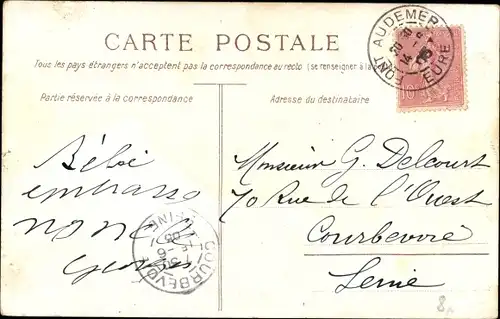 CARTE POSTALE
Tous les pays étrangers n'acceptent pas la correspondance au recto (se renseigner à la
Partie réservée à la correspondance
Adresse du destinataire
PONT AUDEMER
EURE
10
Bébé
embrasse
nonon
Georges
Monsieur G. Delcourt
70 Rue de l'Ouest
Courbevoie
Seine
COURBEVOIE
SEINE
8